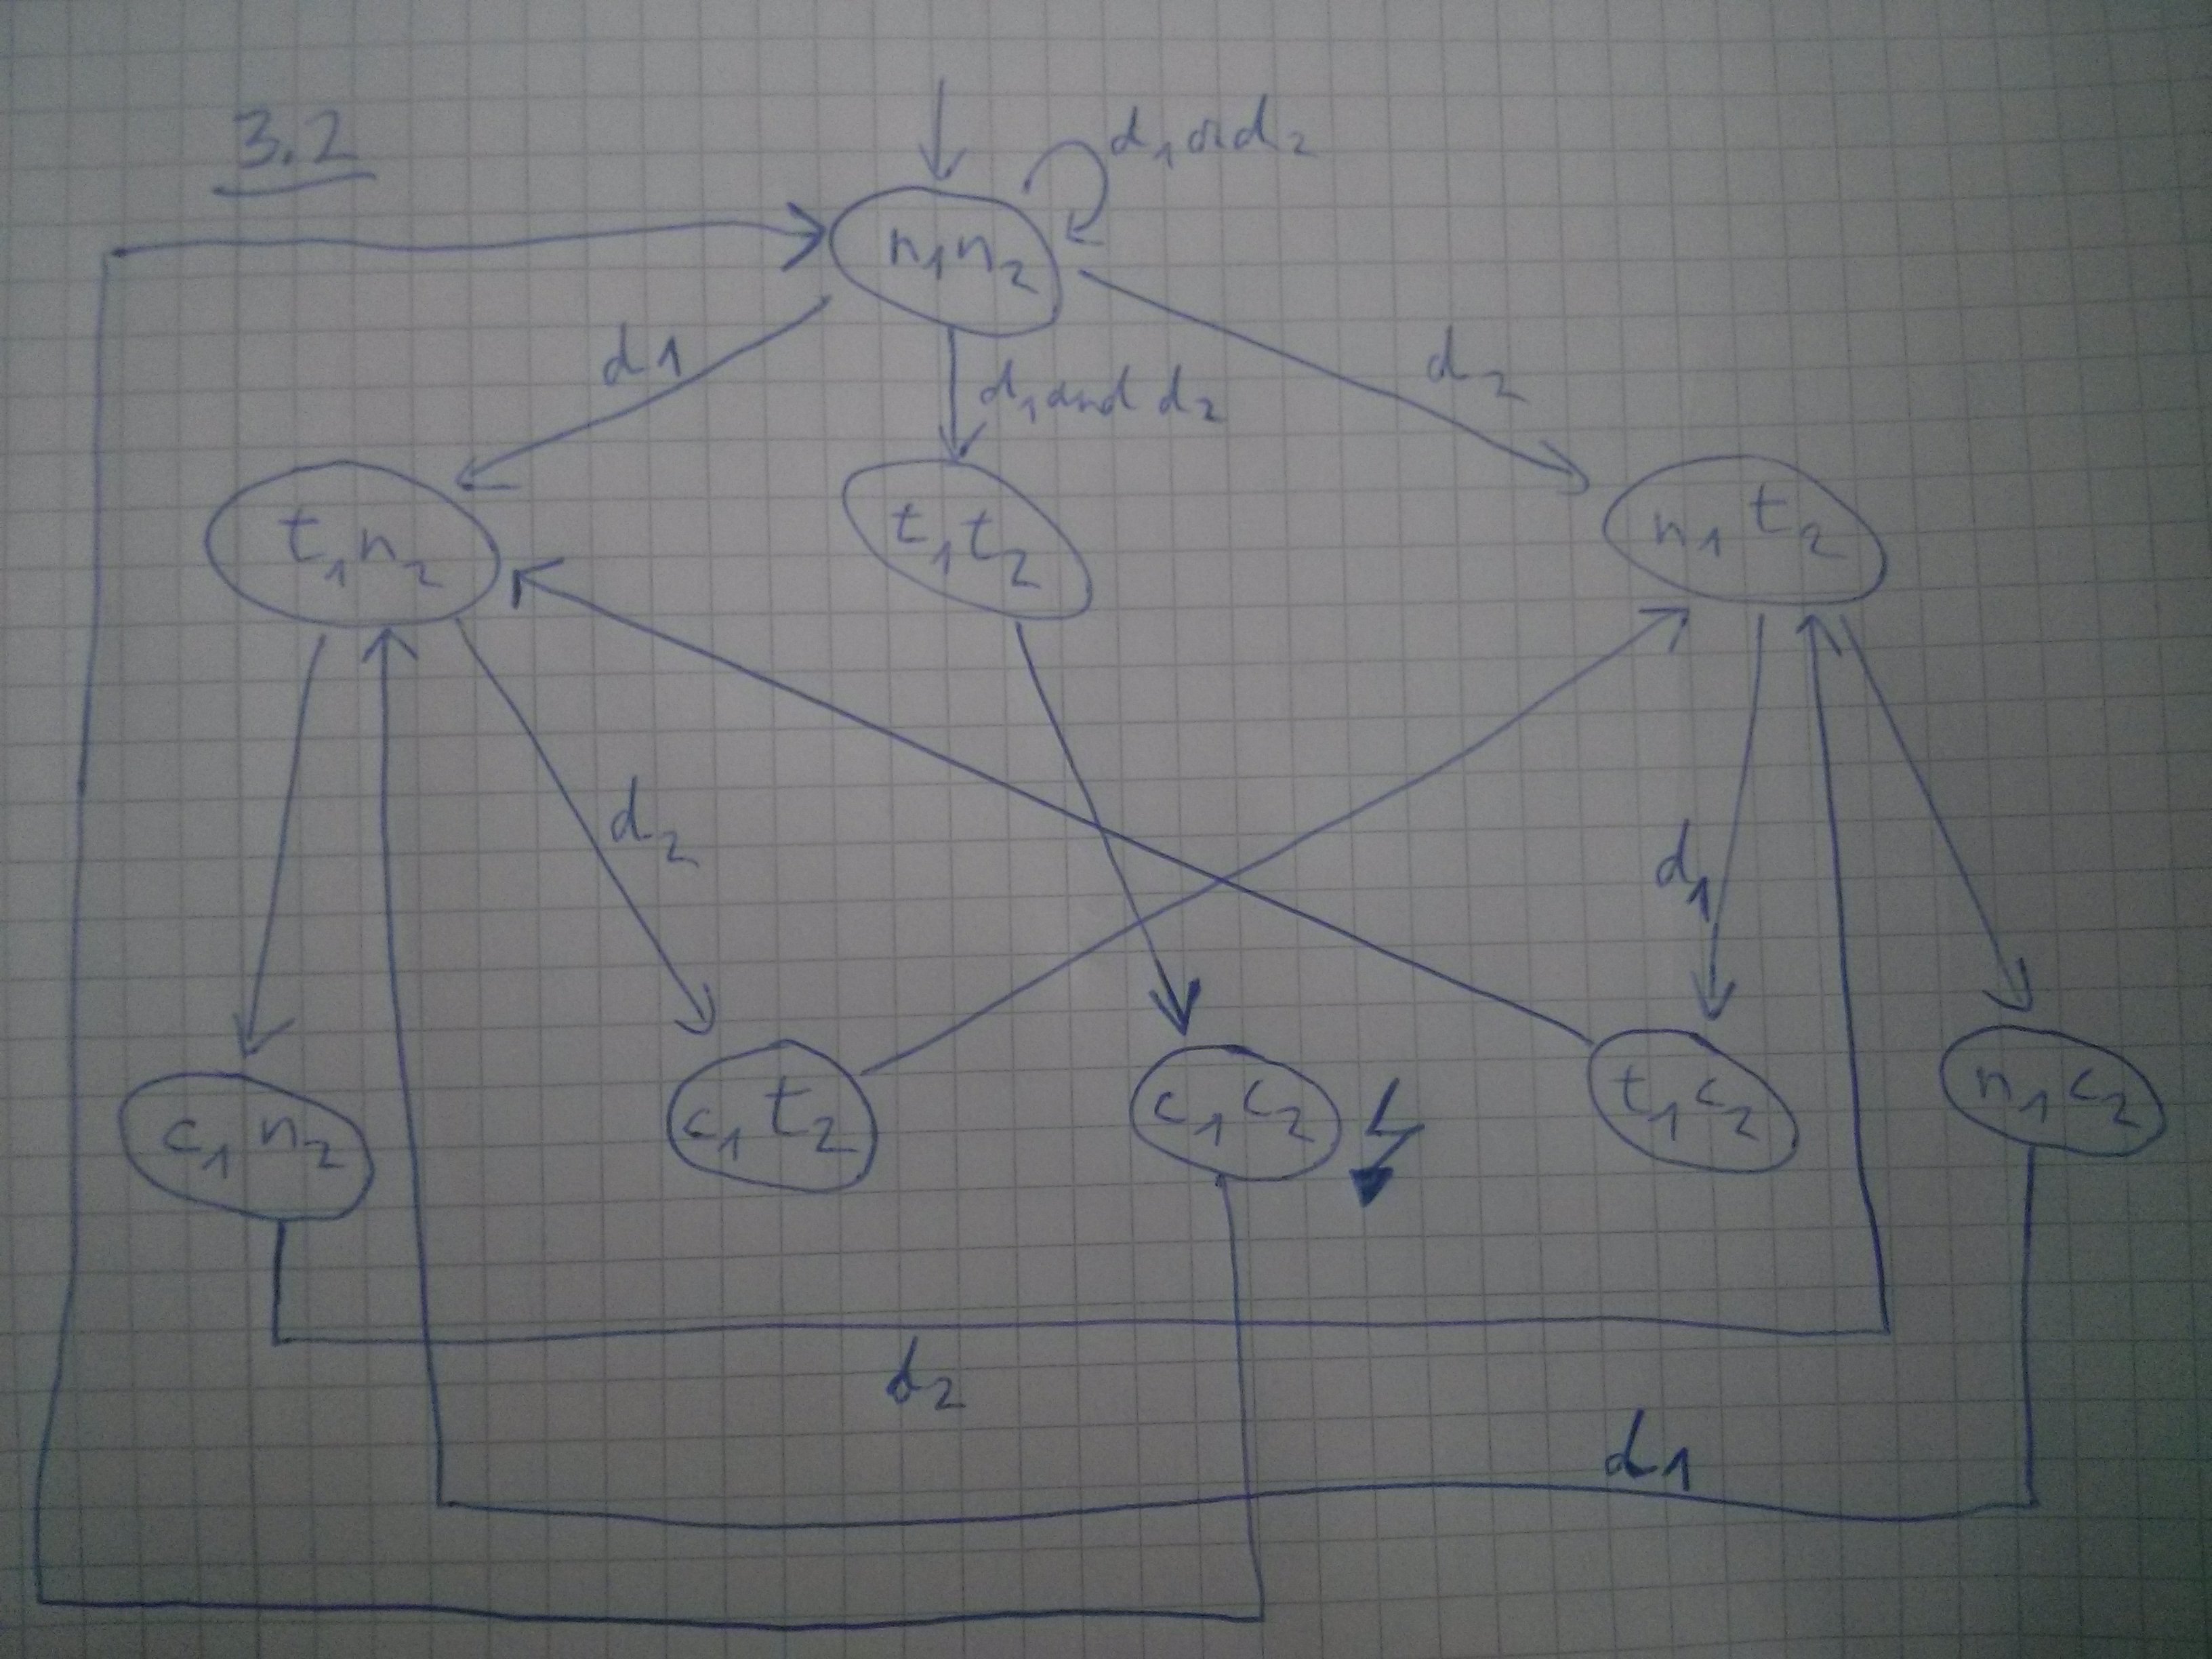 3.2
d₁ or d₂
n₁n₂
d1
d₁ and d₂
d₂
t₁n₂
t₁t₂
n₁t₂
d₂
d₁
c₁n₂
c₁t₂
c₁c₂
t₁c₂
n₁c₂
d₂
d₁